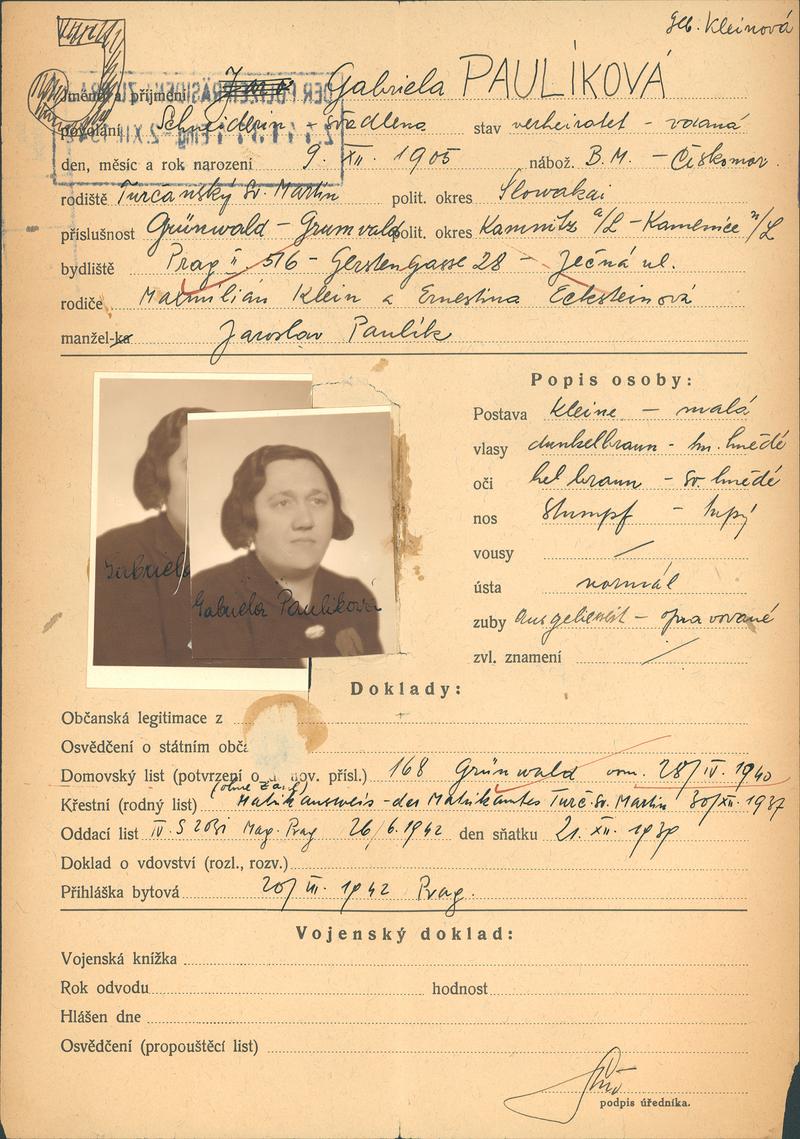 geb. Kleinová
Jméno a příjmení Gabriela PAULÍKOVÁ
povolání Schneiderin - švadlena stav verheiratet - vdaná
den, měsíc a rok narození 9. XII. 1905 nábož. B.M. - Českomor.
rodiště Turčanský Sv. Martin polit. okres Slowakei
příslušnost Grünwald - Grumvald polit. okres Kamnitz a/L - Kamenice n/L
bydliště Prag II. 516 - Gerstengasse 28 - Ječná ul.
rodiče Maxmilián Klein a Ernestina Ecksteinová
manžel-ka Jaroslav Paulík
Popis osoby:
Postava kleine - malá
vlasy dunkelbraun - tm. hnědé
oči hel braun - sv. hnědé
nos stumpf - tupý
vousy /
ústa normál
zuby ausgebessert - opravované
zvl. znamení /
Gabriela
Gabriela Paulíková
Doklady:
Občanská legitimace z
Osvědčení o státním obča
Domovský list (potvrzení o nov. přísl.) 168 Grünwald vom. 28/IV. 1940
Křestní (rodný list) Matrikausweis - des Matrikamtes Turč. Sv. Martin 30/XII. 1937
Oddací list IV. S Mag. Prag 26/6. 1942 den sňatku 21. XII. 1939
Doklad o vdovství (rozl., rozv.)
Přihláška bytová 20/III. 1942 Prag.
Vojenský doklad:
Vojenská knížka
Rok odvodu hodnost
Hlášen dne
Osvědčení (propouštěcí list)
podpis úředníka.